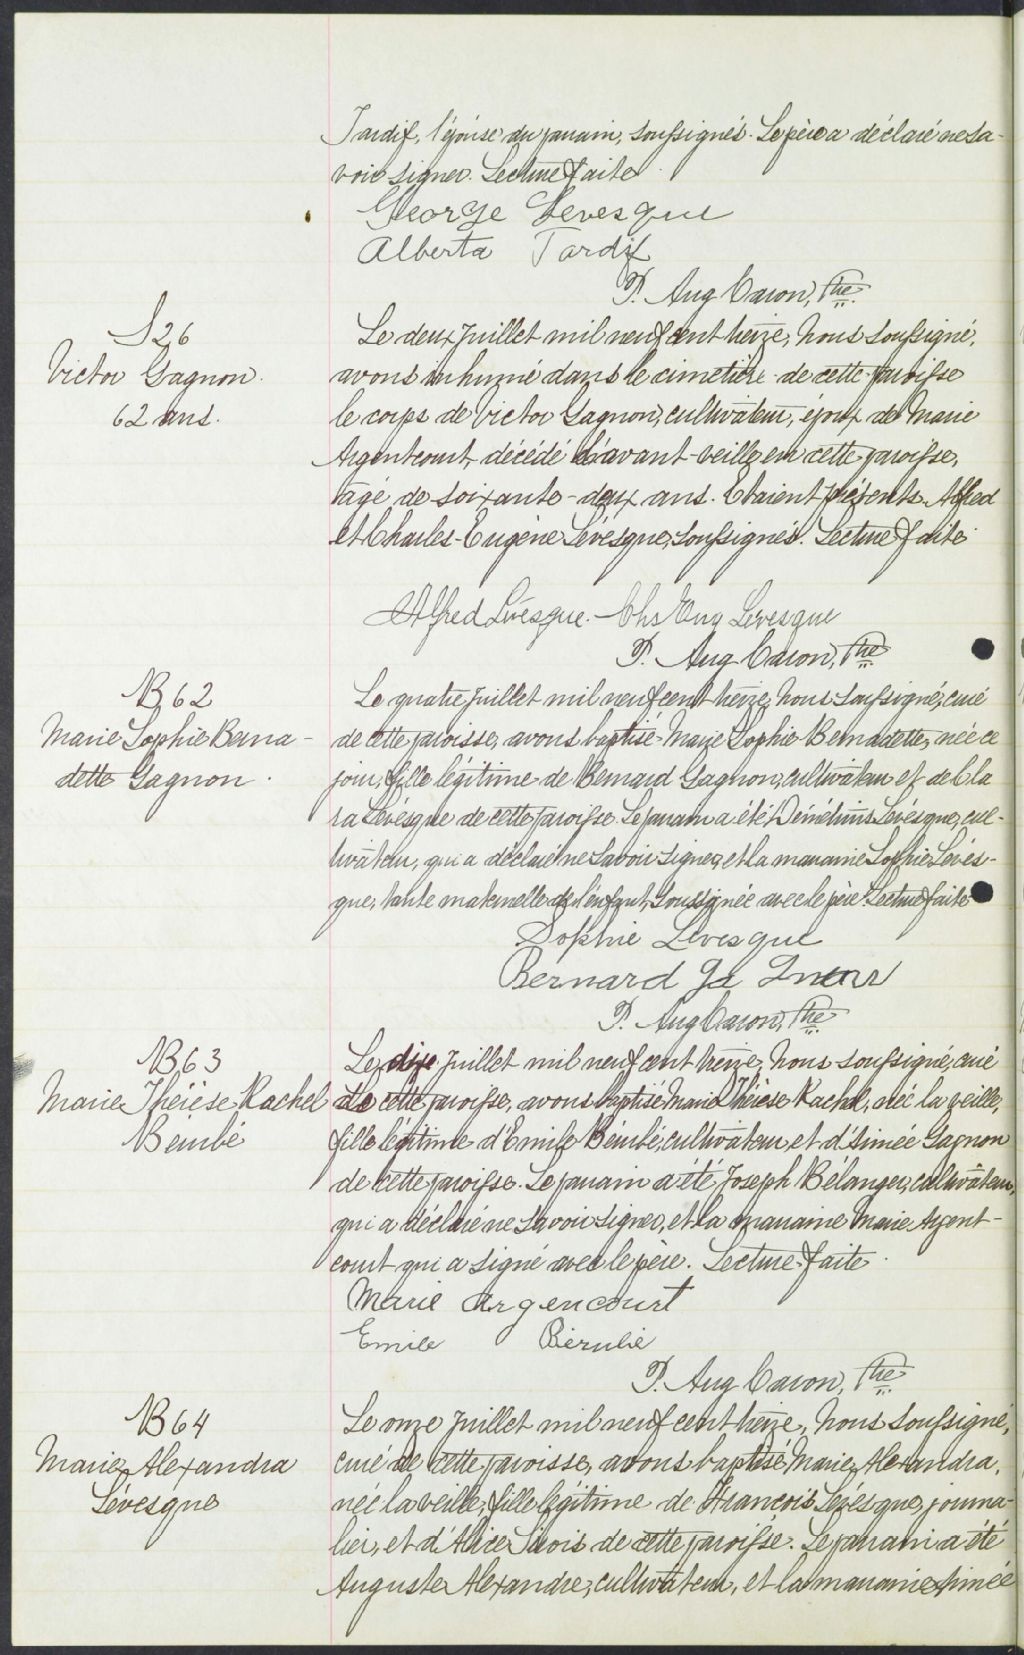 Tardif, l'épouse du parrain, soussignés. Le père a déclaré ne sa-
voir signer. Lecture faite
George Levesque
Alberta Tardif
P. Aug Caron, Ptre
S 26
Victor Gagnon.
62 ans.
Le deux Juillet mil neuf cent treize, Nous soussigné,
avons inhumé dans le cimetière de cette paroisse
le corps de Victor Gagnon, cultivateur, époux de Marie
Argentcourt, décédé l'avant-veille en cette paroisse,
âgé de soixante-deux ans. Etaient présents Alfred
et Charles-Eugène Lévesque, soussignés. Lecture faite
Alfred Lévesque. Chs Eug Levesque
P. Aug Caron, Ptre
B 62
Marie Sophie Berna-
dette Gagnon.
Le quatre Juillet mil neuf cent treize, Nous soussigné, curé
de cette paroisse, avons baptisé Marie Sophie Bernadette, née ce
jour, fille légitime de Bernard Gagnon, cultivateur et de Cla
ra Lévesque de cette paroisse. Le parrain a été Démétrius Lévesque, cul-
tivateur, qui a déclaré ne savoir signer, et la marraine Sophie Léves-
que, tante maternelle de l'enfant, soussignée avec le père. Lecture faite
Sophie Levesque
Bernard
P. Aug Caron, Ptre
B 63
Marie Thérèse Rachel
Bérubé
Le dix Juillet mil neuf cent treize, Nous soussigné, curé
de cette paroisse, avons baptisé Marie Thérèse Rachel, née la veille,
fille légitime d'Emile Bérubé, cultivateur et d'Aimée Gagnon
de cette paroisse. Le parrain a été Joseph Bélanger, cultivateur,
qui a déclaré ne savoir signer, et la marraine Marie Argent-
court qui a signé avec le père. Lecture faite.
Marie Argencourt
Emile Bérubé
P. Aug Caron, Ptre
B 64
Marie Alexandra
Lévesque
Le onze Juillet mil neuf cent treize, Nous soussigné,
curé de cette paroisse, avons baptisé Marie Alexandra,
née la veille, fille légitime de François Lévesque, journa-
lier, et d'Alice Sirois de cette paroisse. Le parrain a été
Auguste Alexandre, cultivateur, et la marraine Aimée